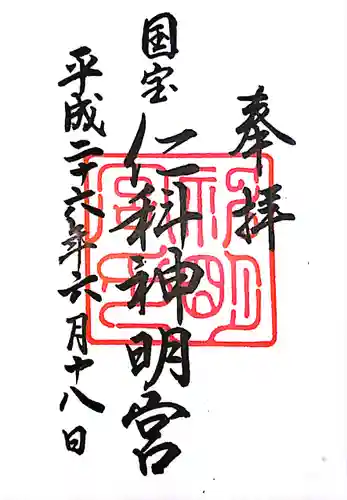 奉拝
国宝 仁科神明宮
平成二十六年六月十八日